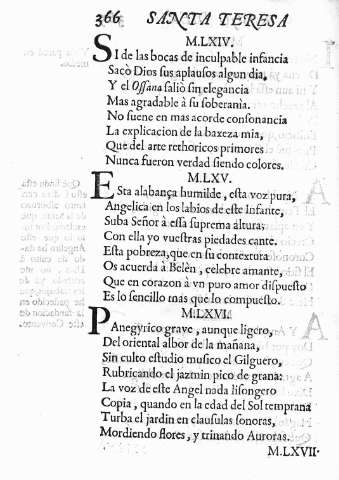 366 SANTA TERESA
M.LXIV.
SI de las bocas de inculpable infancia
Sacò Dios sus aplausos algun dia,
Y el Ossana saliò sin elegancia
Mas agradable à su soberanìa.
No suene en mas acorde consonancia
La explicacion de la baxeza mia,
Que del arte rethoricos primores
Nunca fueron verdad siendo colores.
M.LXV.
ESta alabança humilde, esta voz pura,
Angelica en los labios de este Infante,
Suba Señor à essa suprema altura;
Con ella yo vuestras piedades cante.
Esta pobreza, que en su contextura
Os acuerda à Belèn, celebre amante,
Que en corazon à vn puro amor dispuesto
Es lo sencillo mas que lo compuesto.
M.LXVI.
PAnegyrico grave, aunque ligero,
Del oriental albor de la mañana,
Sin culto estudio musico el Gilguero,
Rubricando el jazmin pico de grana:
La voz de este Angel nada lisongero
Copia, quando en la edad del Sol temprana
Turba el jardin en clausulas sonoras,
Mordiendo flores, y trinando Auroras.
M.LXVII.